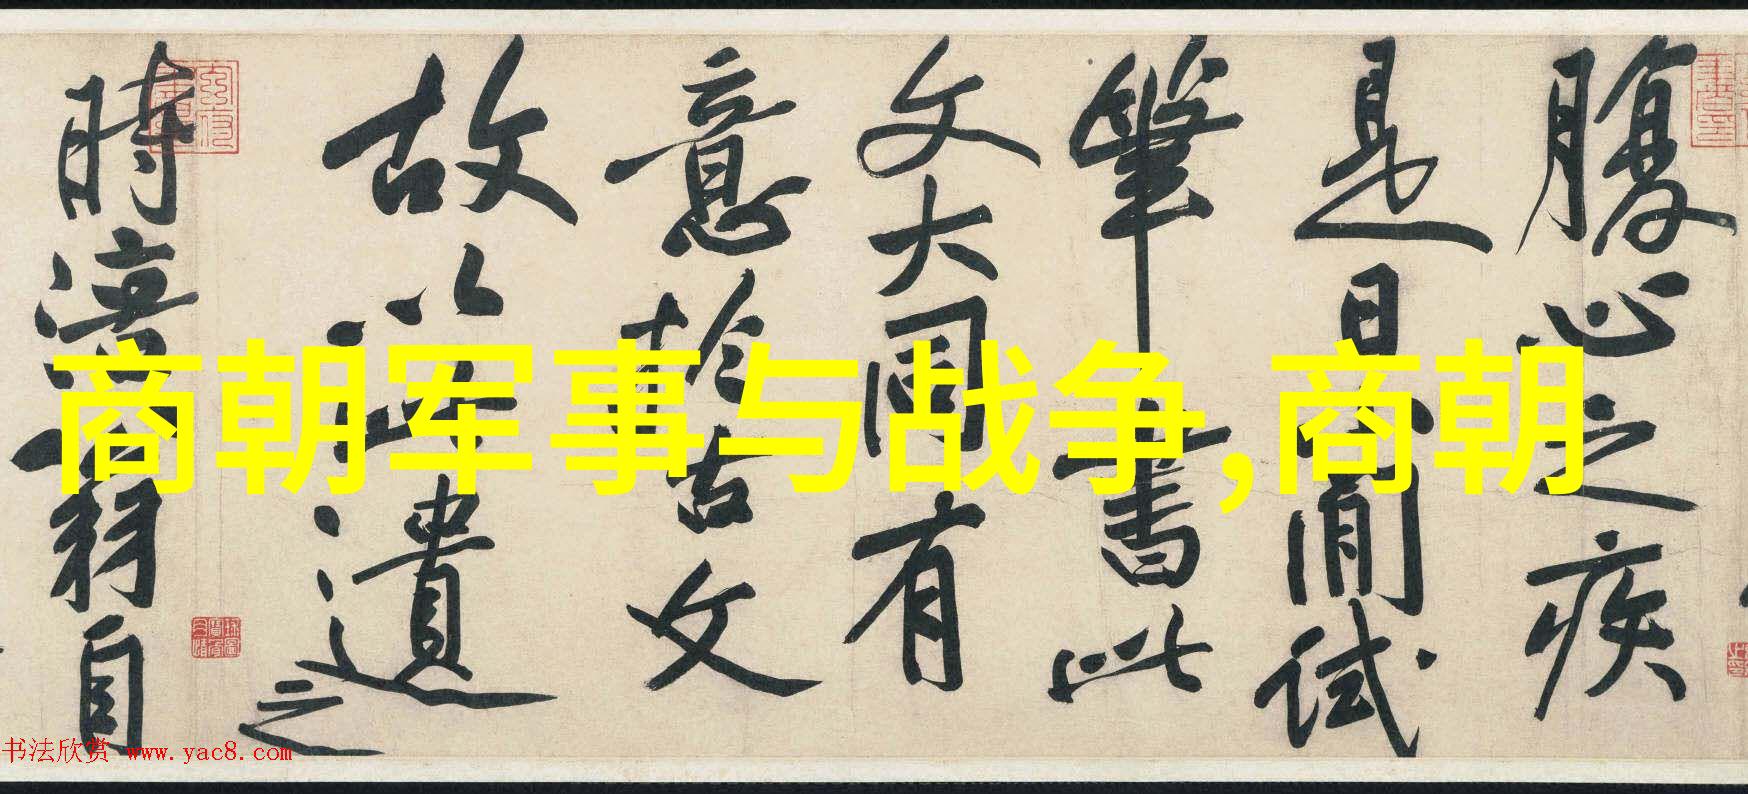 商朝军事与战争,商朝
腹心之疾
是日閒試
筆書此
文大同有
意於古文
故以此遺
之
時涪翁自
书法欣赏 www.yac8.com